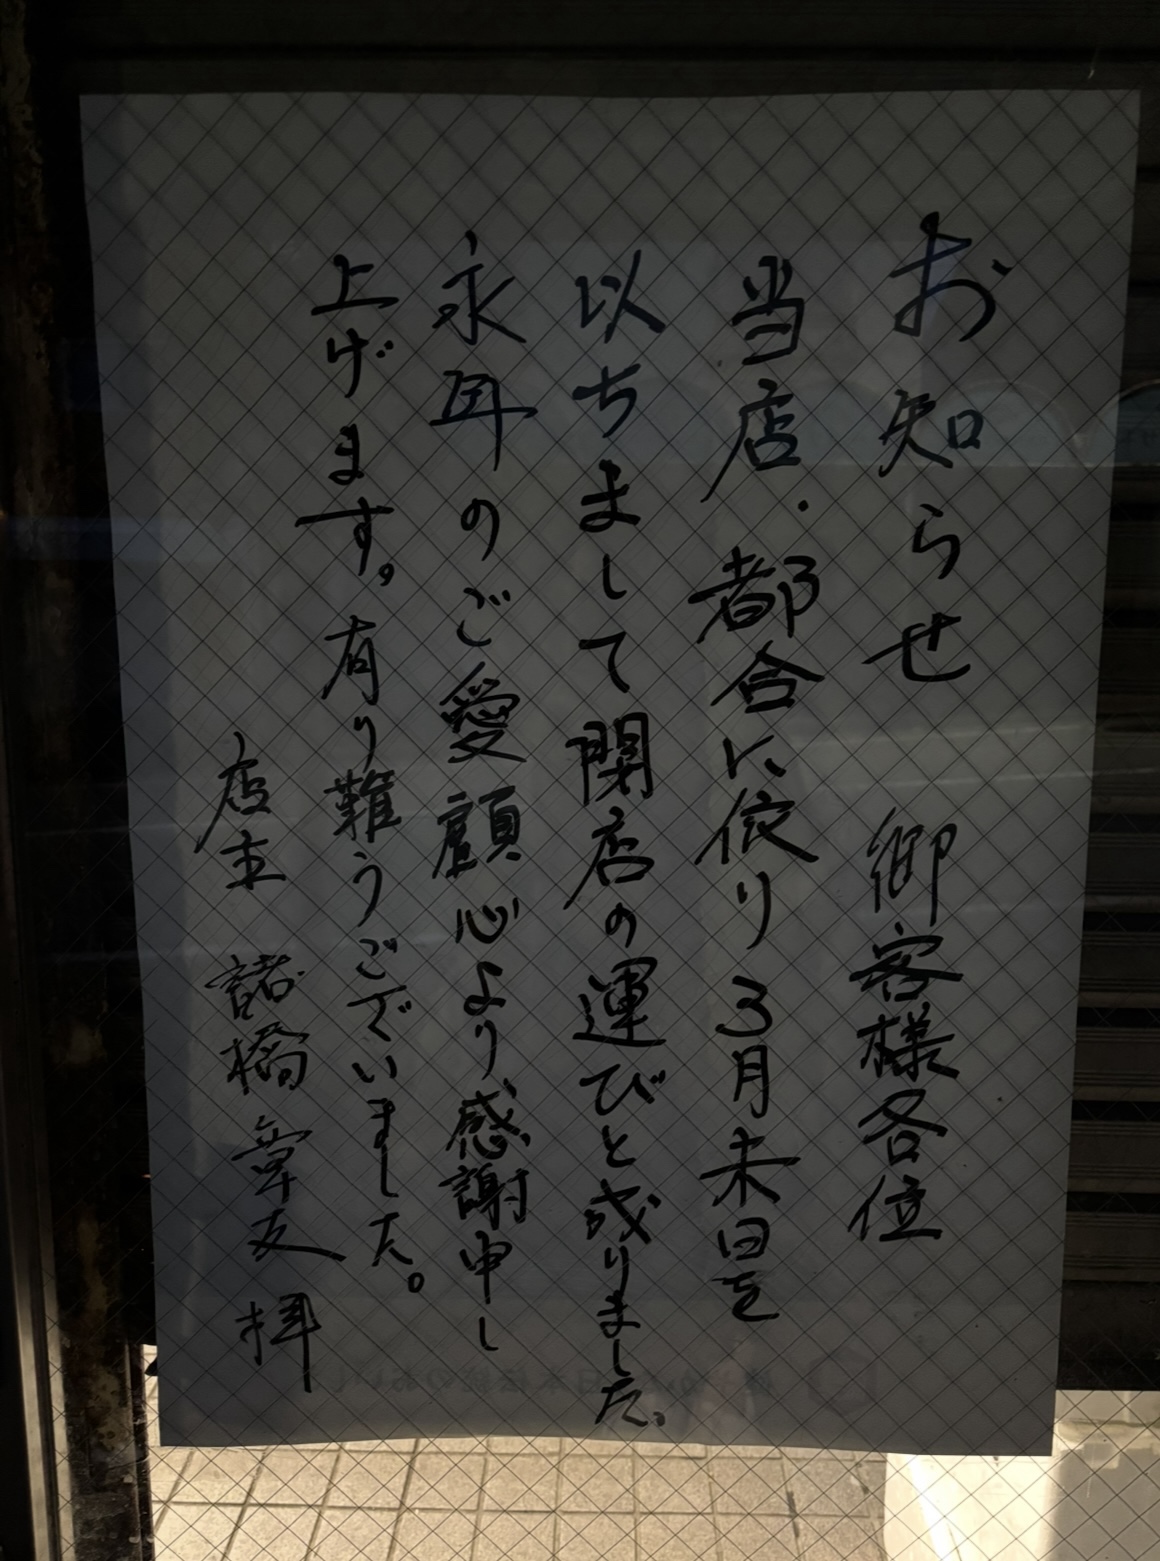 お知らせ　御客様各位
当店・都合に依り3月末日を
以ちまして閉店の運びと成りました、
永年のご愛顧心より感謝申し
上げます。有り難うございました。
店主　諸橋章友　拝